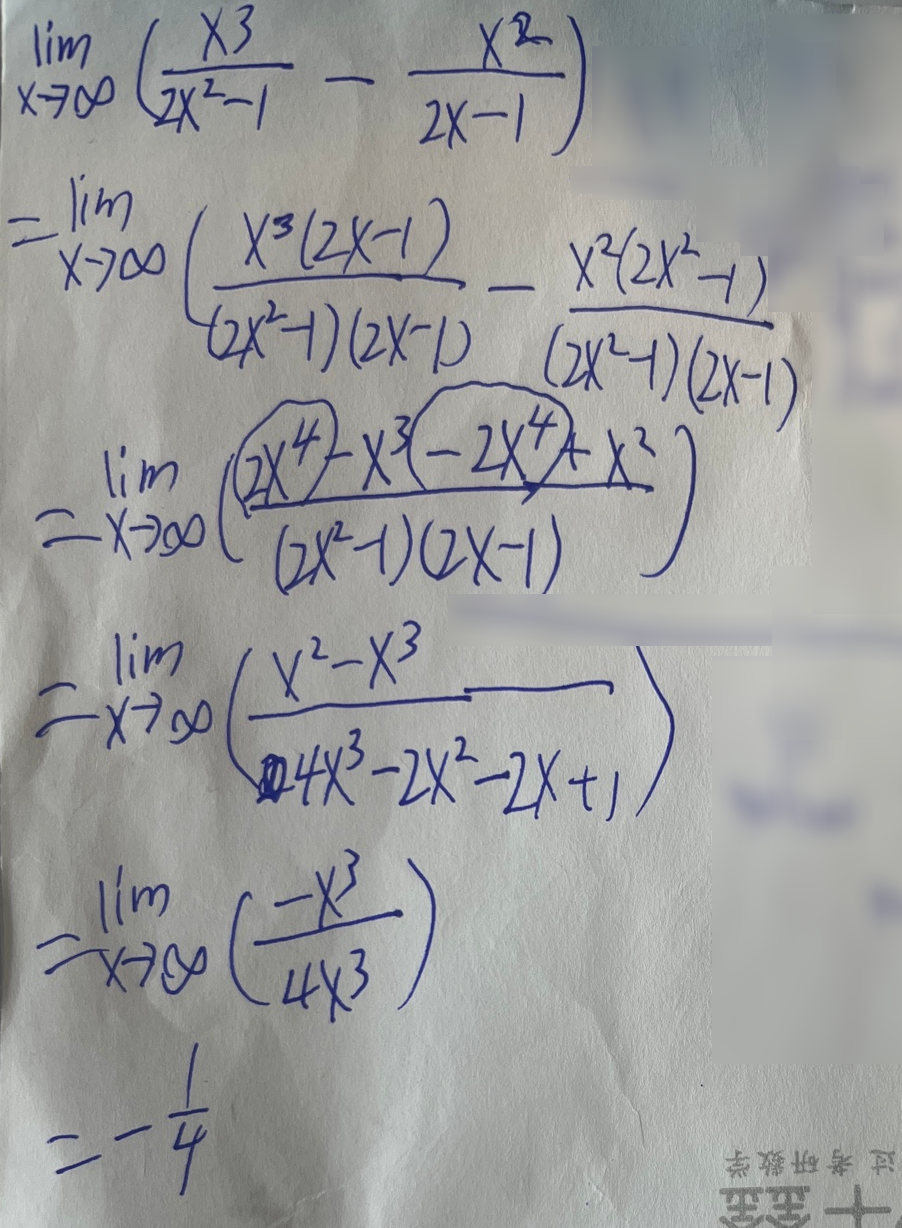 lim x→∞ (x3/(2x²-1) - x²/(2x-1))
= lim x→∞ (x³(2x-1)/((2x²-1)(2x-1)) - x²(2x²-1)/((2x²-1)(2x-1)))
= lim x→∞ ((2x⁴-x³-2x⁴+x²)/((2x²-1)(2x-1)))
= lim x→∞ ((x²-x³)/(4x³-2x²-2x+1))
= lim x→∞ (-x³/4x³)
= -1/4
过考研数学